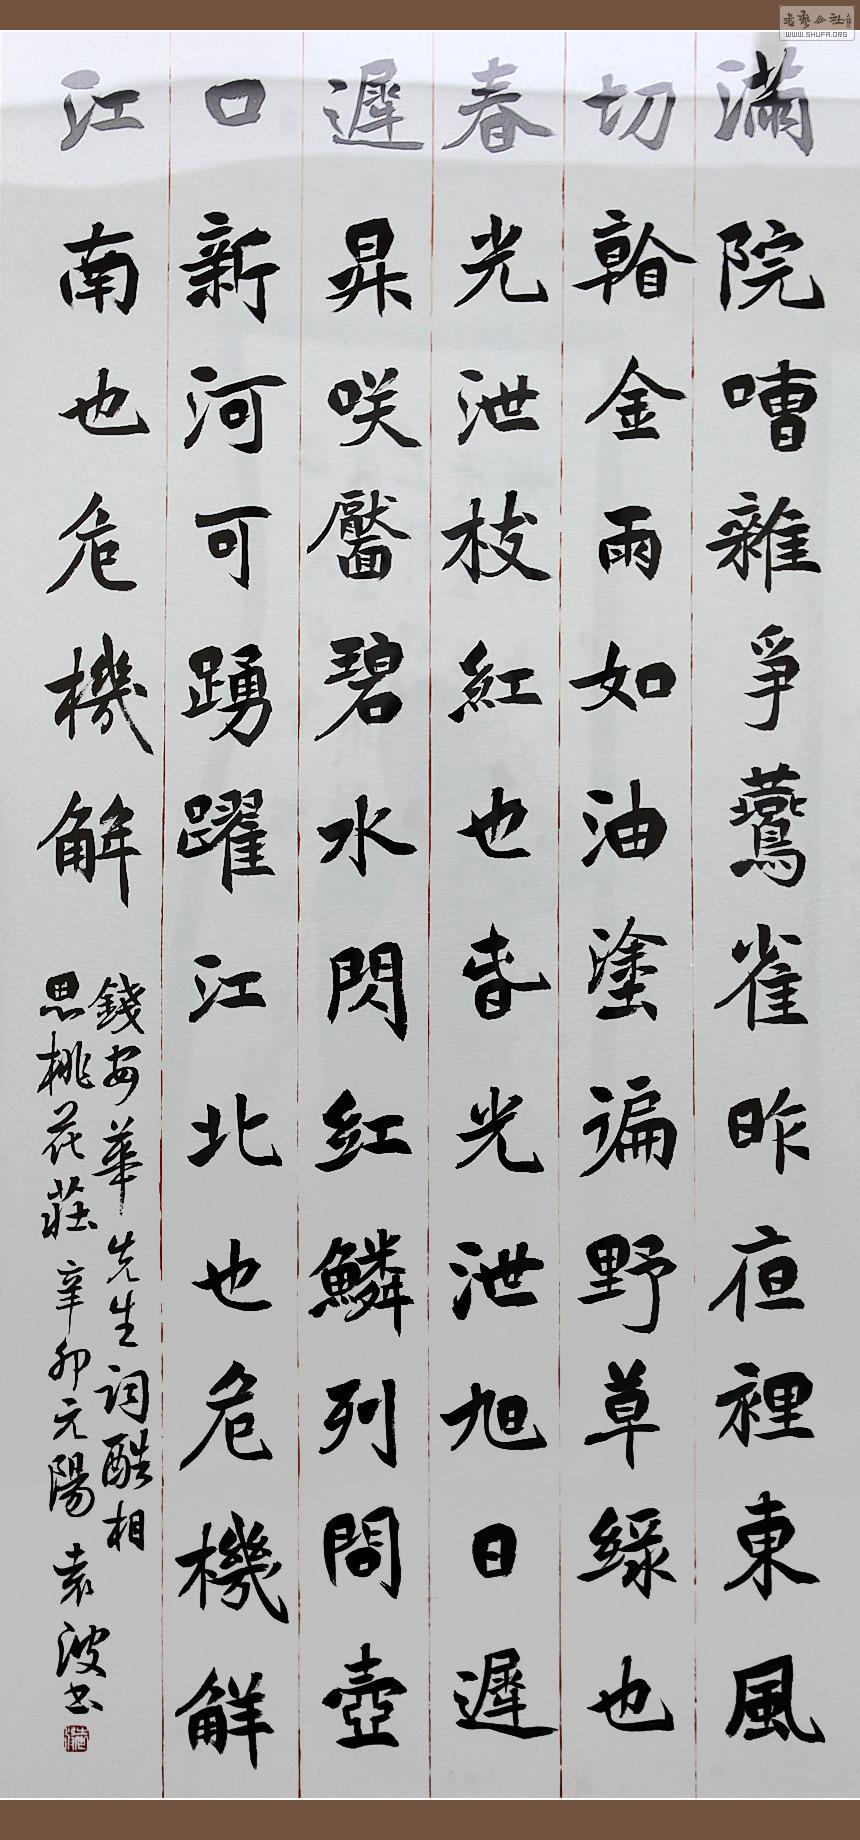 滿院嘈雜爭鷰雀昨夜裡東風
切金雨如油塗徧野草綠也
春光泄枝紅也春光泄旭日遲
遲昇咲靨碧水閃紅鱗列問壺
口新河可踴躍江北也危機解
江南也危機解
錢安華先生詞酷相
思桃花莊辛卯元陽袁波書
書藝公社
WWW.SHUFA.ORG